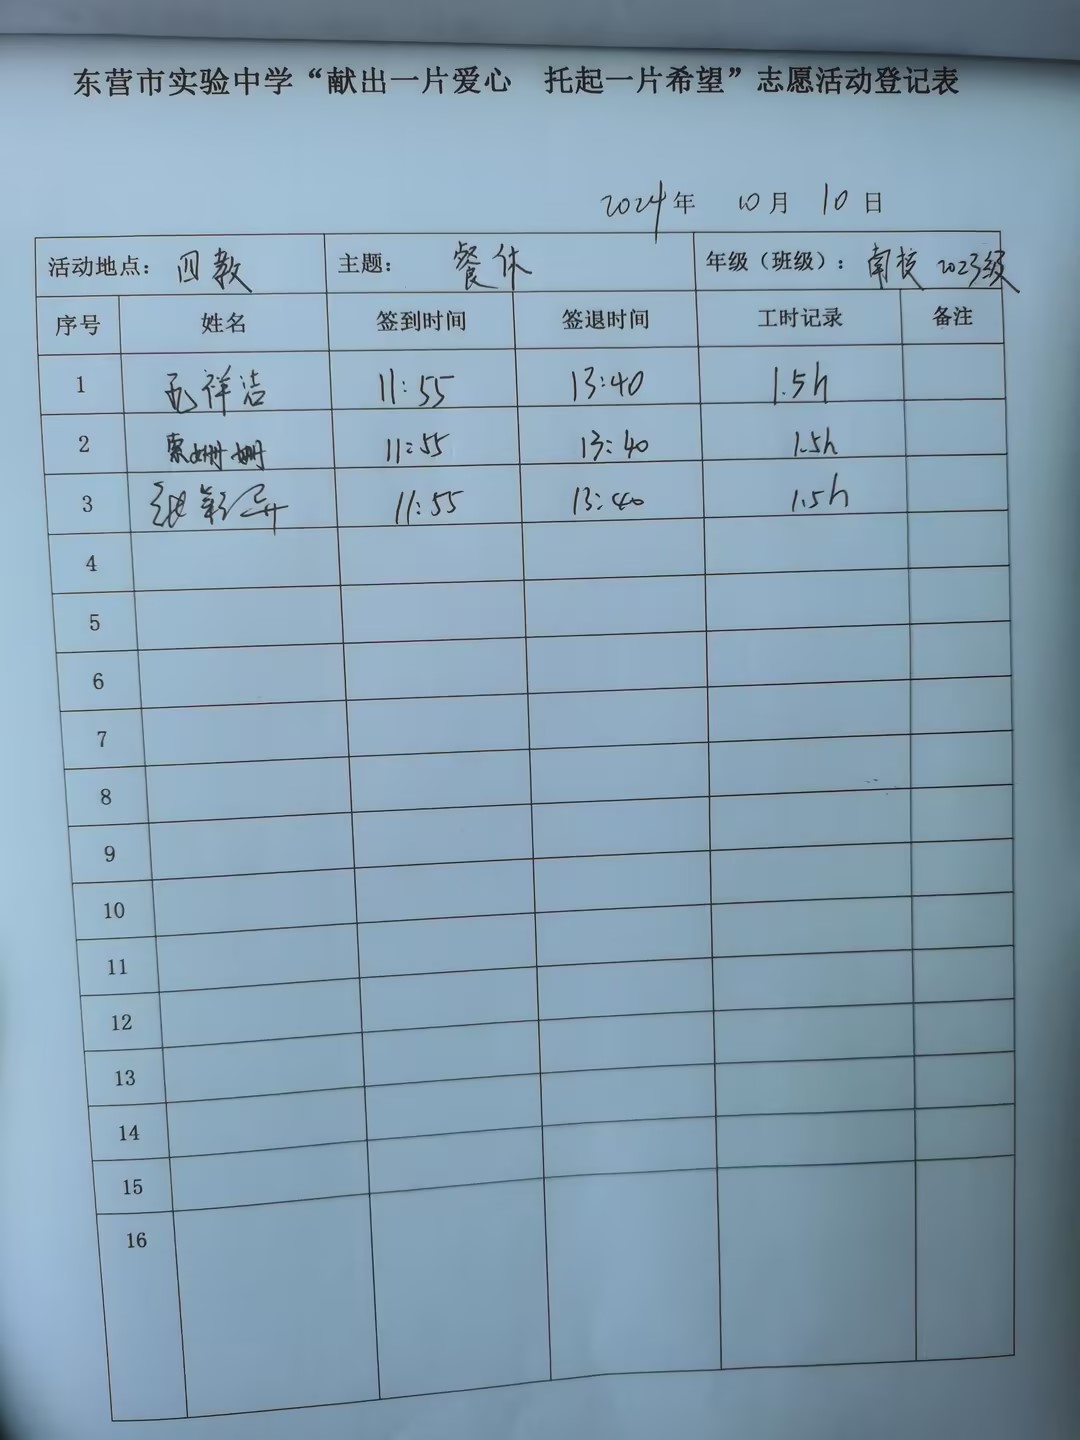 东营市实验中学“献出一片爱心 托起一片希望”志愿活动登记表
2024年 10月 10日
活动地点：四教 主题：餐休 年级（班级）：南校 2023级
序号 姓名 签到时间 签退时间 工时记录 备注
1 祥洁 11:55 13:40 1.5h
2 索姗姗 11:55 13:40 1.5h
3 11:55 13:40 1.5h
4
5
6
7
8
9
10
11
12
13
14
15
16